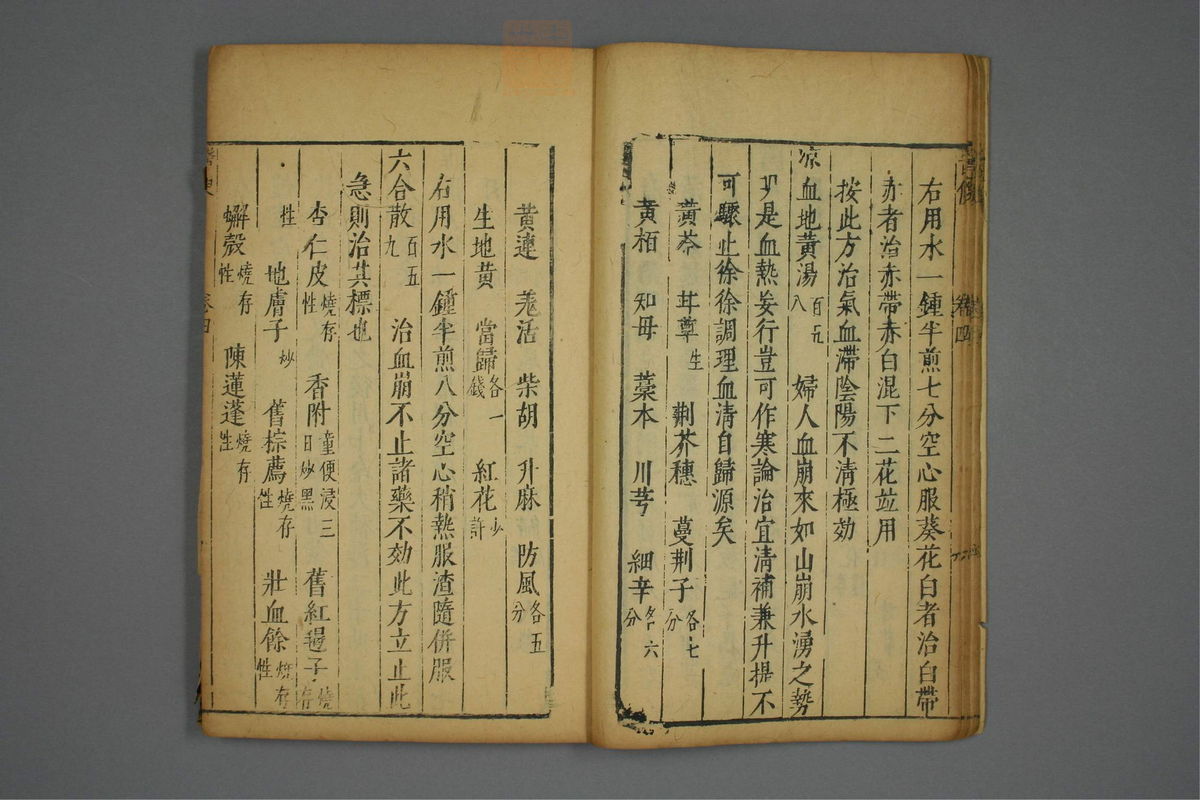 右用水一鍾半煎七分空心服葵花白者治白帶
赤者治赤帶赤白混下二花並用
按此方治氣血滯陰陽不清極効
凉血地黃湯百五八 婦人血崩來如山崩水湧之勢
乃是血熱妄行豈可作寒論治宜清補兼升提不
可驟止徐徐調理血清自歸源矣
黃芩 甘草生 荆芥穗 蔓荆子各七分
黃栢 知毋 藁本 川芎 細辛各六分
黃連 羌活 柴胡 升麻 防風各五分
生地黃 當歸各一錢 紅花少許
右用水一鍾半煎八分空心稍熱服渣隨併服
六合散百五九 治血崩不止諸藥不効此方立止此
急則治其標也
杏仁皮燒存性 香附童便浸三日炒黑 舊紅毯子燒存性
地膚子炒 舊棕薦燒存性 壯血餘燒存性
蠏殼燒存性 陳蓮蓬燒存性
卷四